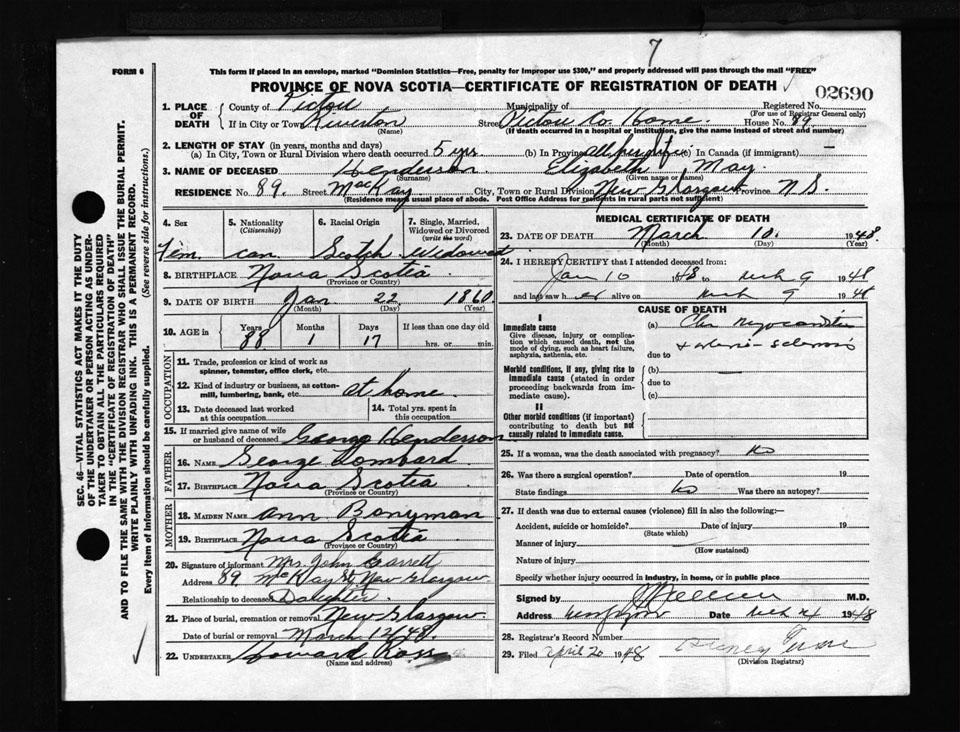 7
FORM 6
This form if placed in an envelope, marked "Dominion Statistics—Free, penalty for improper use $300," and properly addressed will pass through the mail "FREE"
PROVINCE OF NOVA SCOTIA—CERTIFICATE OF REGISTRATION OF DEATH
02690
1. PLACE OF DEATH { County of Pictou Municipality of Registered No.
(For use of Registrar General only)
If in City or Town Riverton Street Pictou Co. Home. House No. 89
(Name) (If death occurred in a hospital or institution, give the name instead of street and number)
2. LENGTH OF STAY (in years, months and days)
(a) In City, Town or Rural Division where death occurred 5 yrs. (b) In Province all her life (c) In Canada (if immigrant) —
3. NAME OF DECEASED Henderson Elizabeth May.
(Surname) (Given name or names)
RESIDENCE No. 89. Street MacKay City, Town or Rural Division New Glasgow Province N.S.
(Residence means usual place of abode. Post Office Address for residents in rural parts not sufficient)
4. Sex 5. Nationality (Citizenship) 6. Racial Origin 7. Single, Married, Widowed or Divorced (write the word)
Fem. Can. Scotch Widowed
8. BIRTHPLACE Nova Scotia
(Province or Country)
9. DATE OF BIRTH Jan 22 1860
(Month) (Day) (Year)
10. AGE in { Years Months Days If less than one day old
88 1 17 hrs. or min.
OCCUPATION
11. Trade, profession or kind of work as spinner, teamster, office clerk, etc.
12. Kind of industry or business, as cotton-mill, lumbering, bank, etc. at home
13. Date deceased last worked at this occupation 14. Total yrs. spent in this occupation
15. If married give name of wife or husband of deceased George Henderson
FATHER
16. NAME George Lombard
17. BIRTHPLACE Nova Scotia
(Province or Country)
MOTHER
18. MAIDEN NAME Ann Bonyman
19. BIRTHPLACE Nova Scotia
(Province or Country)
20. Signature of informant Mrs. John Garrett
Address 89 McKay St, New Glasgow
Relationship to deceased Daughter
21. Place of burial, cremation or removal New Glasgow
Date of burial or removal March 12/48.
22. UNDERTAKER Howard Ross
(Name and address)
MEDICAL CERTIFICATE OF DEATH
23. DATE OF DEATH March 10. 1948.
(Month) (Day) (Year)
24. I HEREBY CERTIFY that I attended deceased from:
Jan 10 1948 to Mch 9 1948
and last saw her alive on Mch 9 1948
CAUSE OF DEATH
I
Immediate cause
Give disease, injury or complication which caused death, not the mode of dying, such as heart failure, asphyxia, asthenia, etc.
(a) Chr Myocarditis
+ arterio-sclerosis
due to
Morbid conditions, if any, giving rise to immediate cause (stated in order proceeding backwards from immediate cause).
(b)
due to
(c)
II
Other morbid conditions (if important) contributing to death but not causally related to immediate cause.
25. If a woman, was the death associated with pregnancy? No
26. Was there a surgical operation? Date of operation 19
State findings No Was there an autopsy?
27. If death was due to external causes (violence) fill in also the following:—
Accident, suicide or homicide? Date of injury 19
(State which)
Manner of injury
(How sustained)
Nature of injury
Specify whether injury occurred in industry, in home, or in public place
Signed by M.D.
Address Date Mch 1948
28. Registrar's Record Number
29. Filed April 20 1948
(Division Registrar)
SEC. 46—VITAL STATISTICS ACT MAKES IT THE DUTY
OF THE UNDERTAKER OR PERSON ACTING AS UNDER-
TAKER TO OBTAIN ALL THE PARTICULARS REQUIRED
IN THE "CERTIFICATE OF REGISTRATION OF DEATH"
AND TO FILE THE SAME WITH THE DIVISION REGISTRAR WHO SHALL ISSUE THE BURIAL PERMIT.
WRITE PLAINLY WITH UNFADING INK. THIS IS A PERMANENT RECORD.
Every item of information should be carefully supplied. (See reverse side for instructions.)